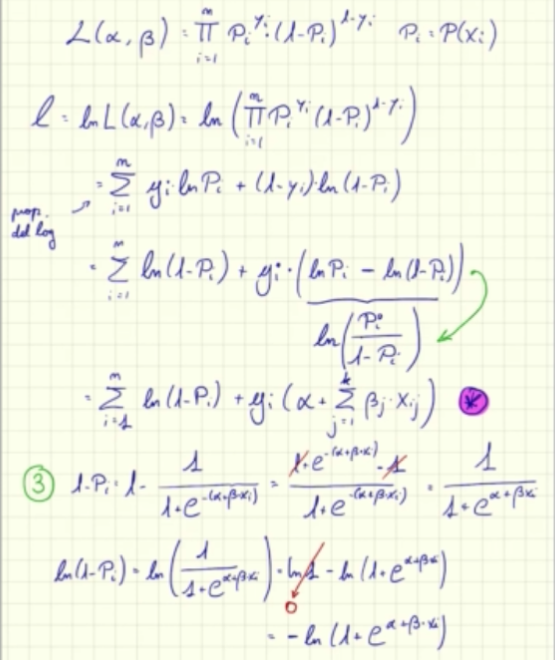 L(α, β) = ∏_{i=1}^{n} P_i^{y_i} · (1-P_i)^{1-y_i}   P_i = P(x_i)
l = ln L(α, β) = ln (∏_{i=1}^{n} P_i^{y_i} (1-P_i)^{1-y_i})
= ∑_{i=1}^{n} y_i · ln P_i + (1-y_i) · ln (1-P_i)
prop.
del log
= ∑_{i=1}^{n} ln (1-P_i) + y_i · (ln P_i - ln (1-P_i))
ln (P_i / (1-P_i))
= ∑_{i=1}^{n} ln (1-P_i) + y_i (α + ∑_{j=1}^{k} β_j · x_{ij}) *
③ 1-P_i = 1 - 1 / (1+e^{-(α+β·x_i)}) = (1+e^{-(α+β·x_i)} - 1) / (1+e^{-(α+β·x_i)}) = 1 / (1+e^{α+β·x_i})
ln (1-P_i) = ln (1 / (1+e^{α+β·x_i})) = ln 1 - ln (1+e^{α+β·x_i})
0
= - ln (1+e^{α+β·x_i})